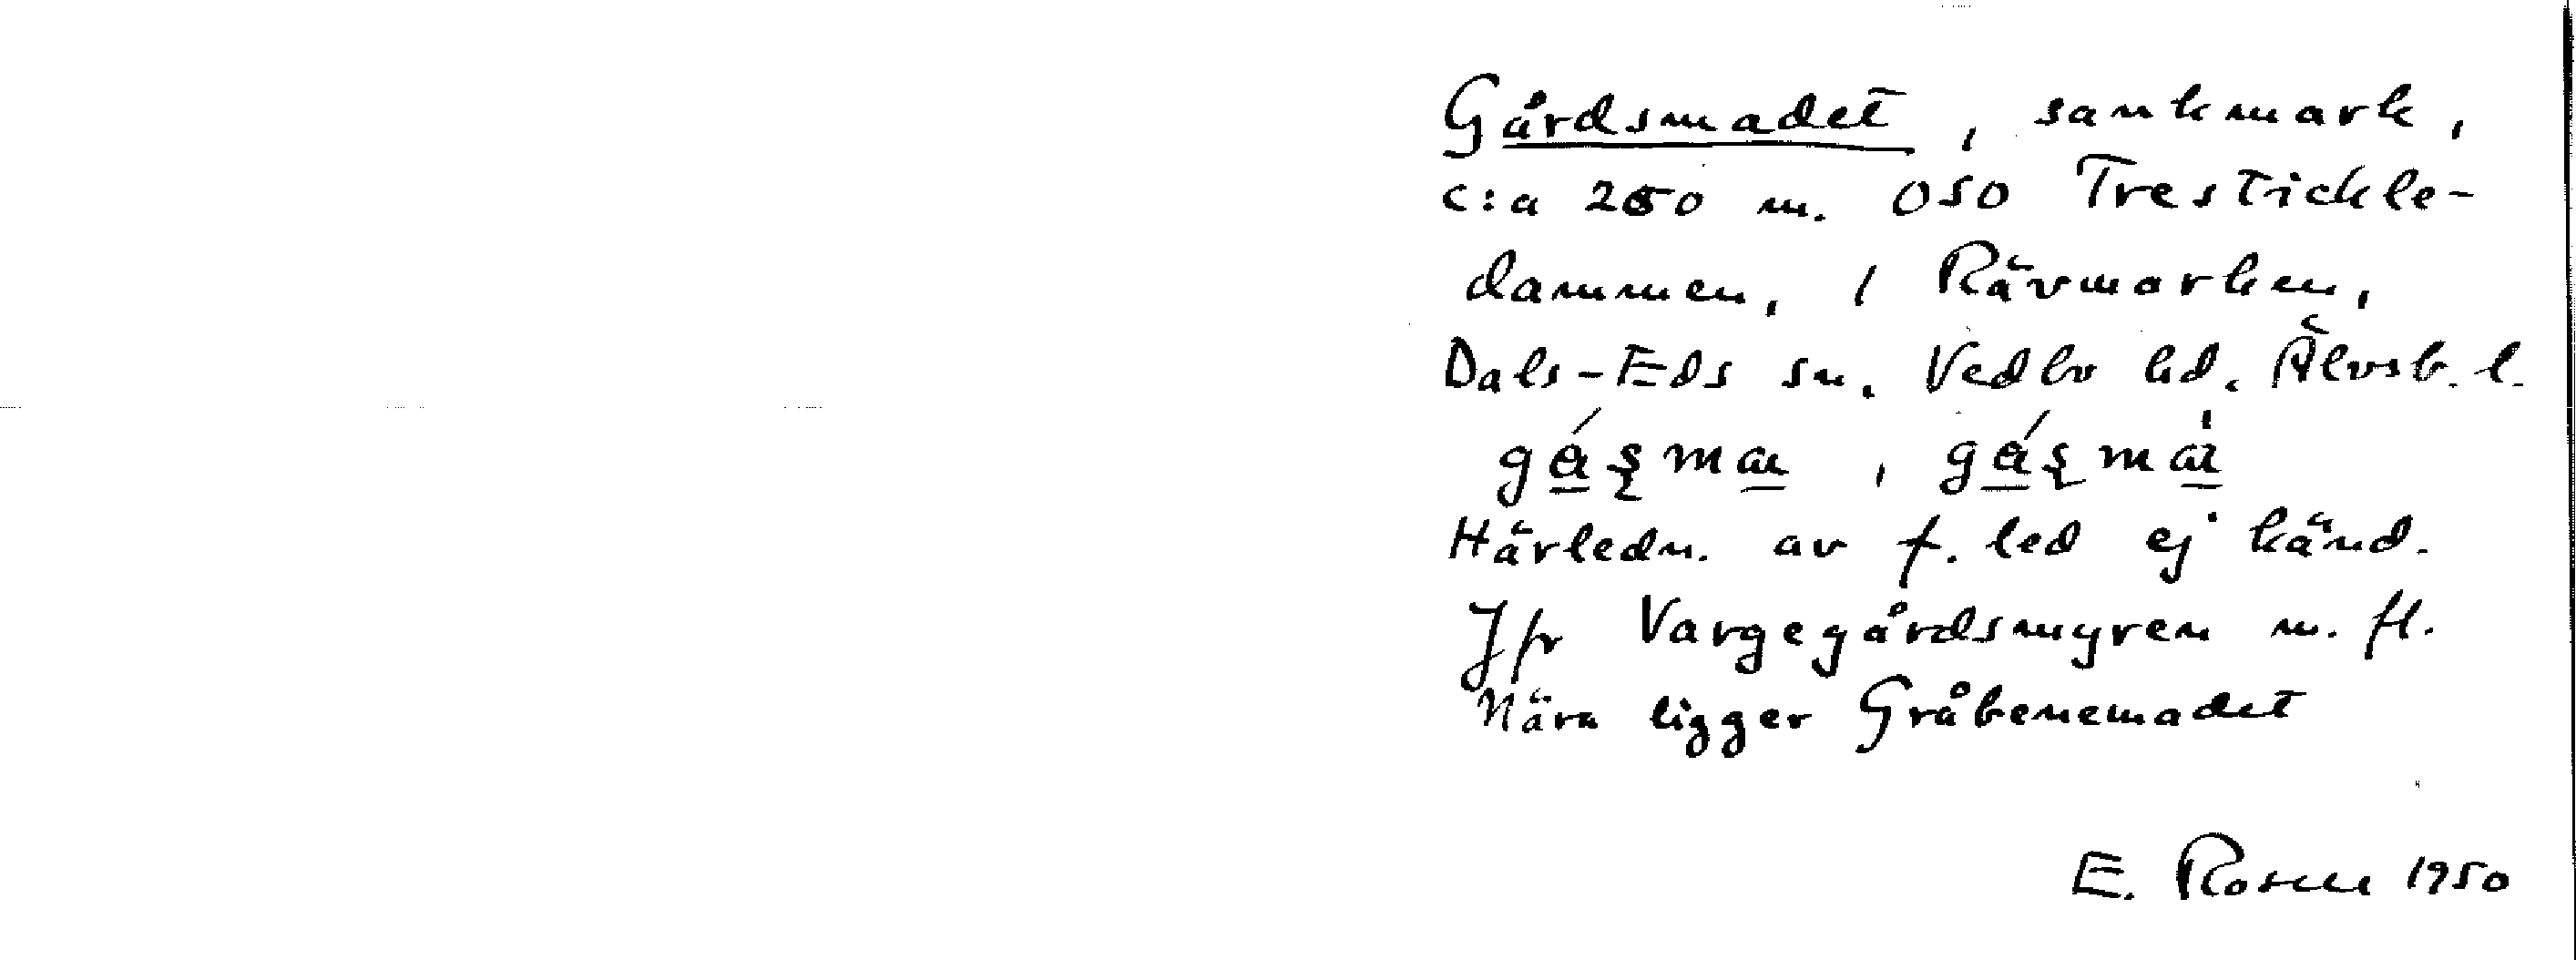 Gårdsmadet, sankmark,
c:a 250 m. OSO Trestickle-
dammen, i Rävmarken,
Dals-Eds sn. Vedbo hd. Älvsb. l.
Härledn. av f. led ej känd.
Jfr Vargegårdsmyren m. fl.
Nära ligger Gråbenemadet
E. Rosen 1950